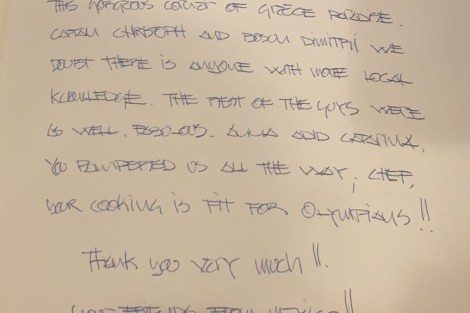 THIS GORGEOUS CORNER OF GREECE PARADISE.
CAPTAIN CHRISTOPH AND BOSUN DIMITRI WE
DOUBT THERE IS ANYONE WITH MORE LOCAL
KNOWLEDGE. THE REST OF THE GUYS WERE
AS WELL, FABULOUS. ANNA AND
YOU PAMPERED US ALL THE WAY; CHEF,
YOUR COOKING IS FIT FOR OLYMPIANS!!
Thank you very much!!
YOUR FRIENDS FROM MEXICO!!